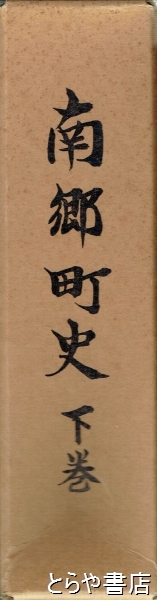 南郷町史 下巻
とらや書店